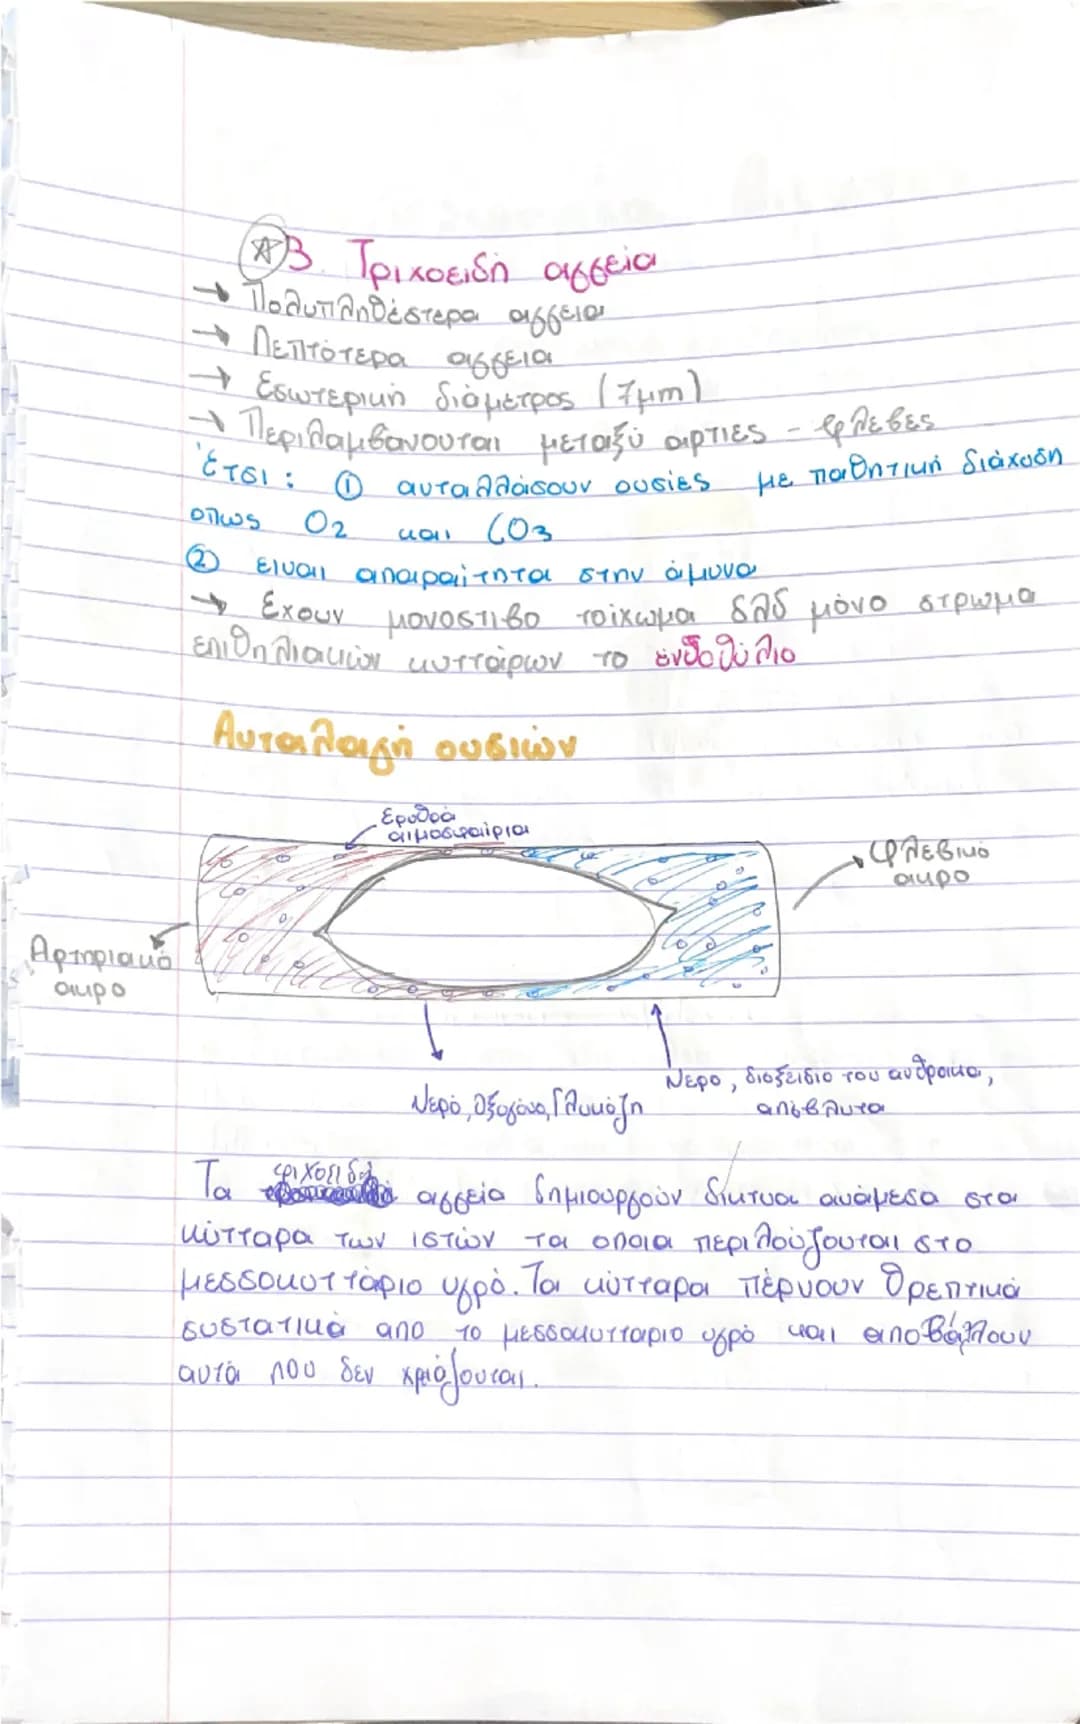 Β. Τριχοειδή αγγεία
→ Πολυπληθέστερα αγγεια
→ Λεπτότερα αγγεια
→ Εσωτερική διάμετρος (7μm)
→ Περιλαμβανονται μεταξύ αρτιες - φλεβες
Έτσι: ① ανταλλάσουν ουσίες με παθητική διάχυση
οπως O2 και CO3
② ειναι απαραίτητα στην άμυνα
→ Εχουν μονοστιβο τοίχωμα δλδ μόνο στρωμα
επιθηλιακών κυττάρων το ενδοθύλιο
Ανταλαγή ουσιών
Ερυθρά
αιμοσφαίρια
Φλεβικό
ακρο
Αρτηριακό
ακρο
Νερό, Οξυγόνο, Γλυκόζη
Νερο, διοξειδιο του ανθρακα,
απόβλητα
Τα τριχοειδή αγγεία δημιουργούν δίκτυα ανάμεσα στα
κύτταρα των ιστών τα οποια περιλούζονται στο
μεσσοκυττάριο υγρό. Τα κύτταρα πέρνουν θρεπτικά
συστατικά απο το μεσσοκυτταριο υγρό και αποβάλλουν
αυτά που δεν χριάζονται.